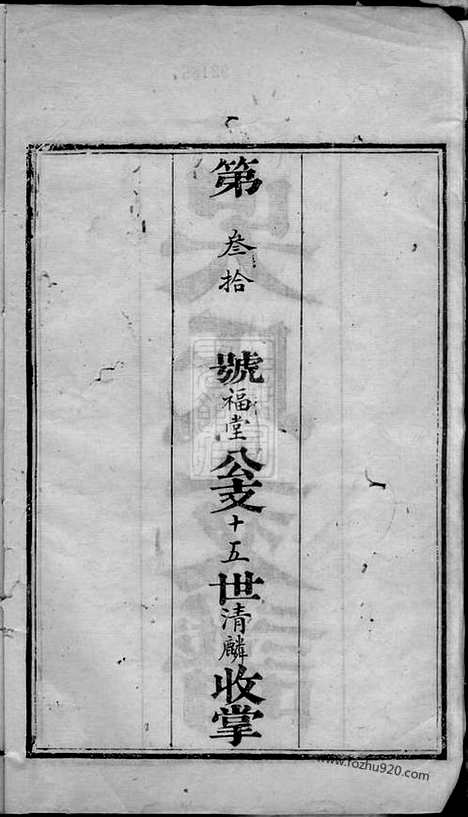 第叁拾號福堂公支十五世清麟收掌
www.fozhu920.com